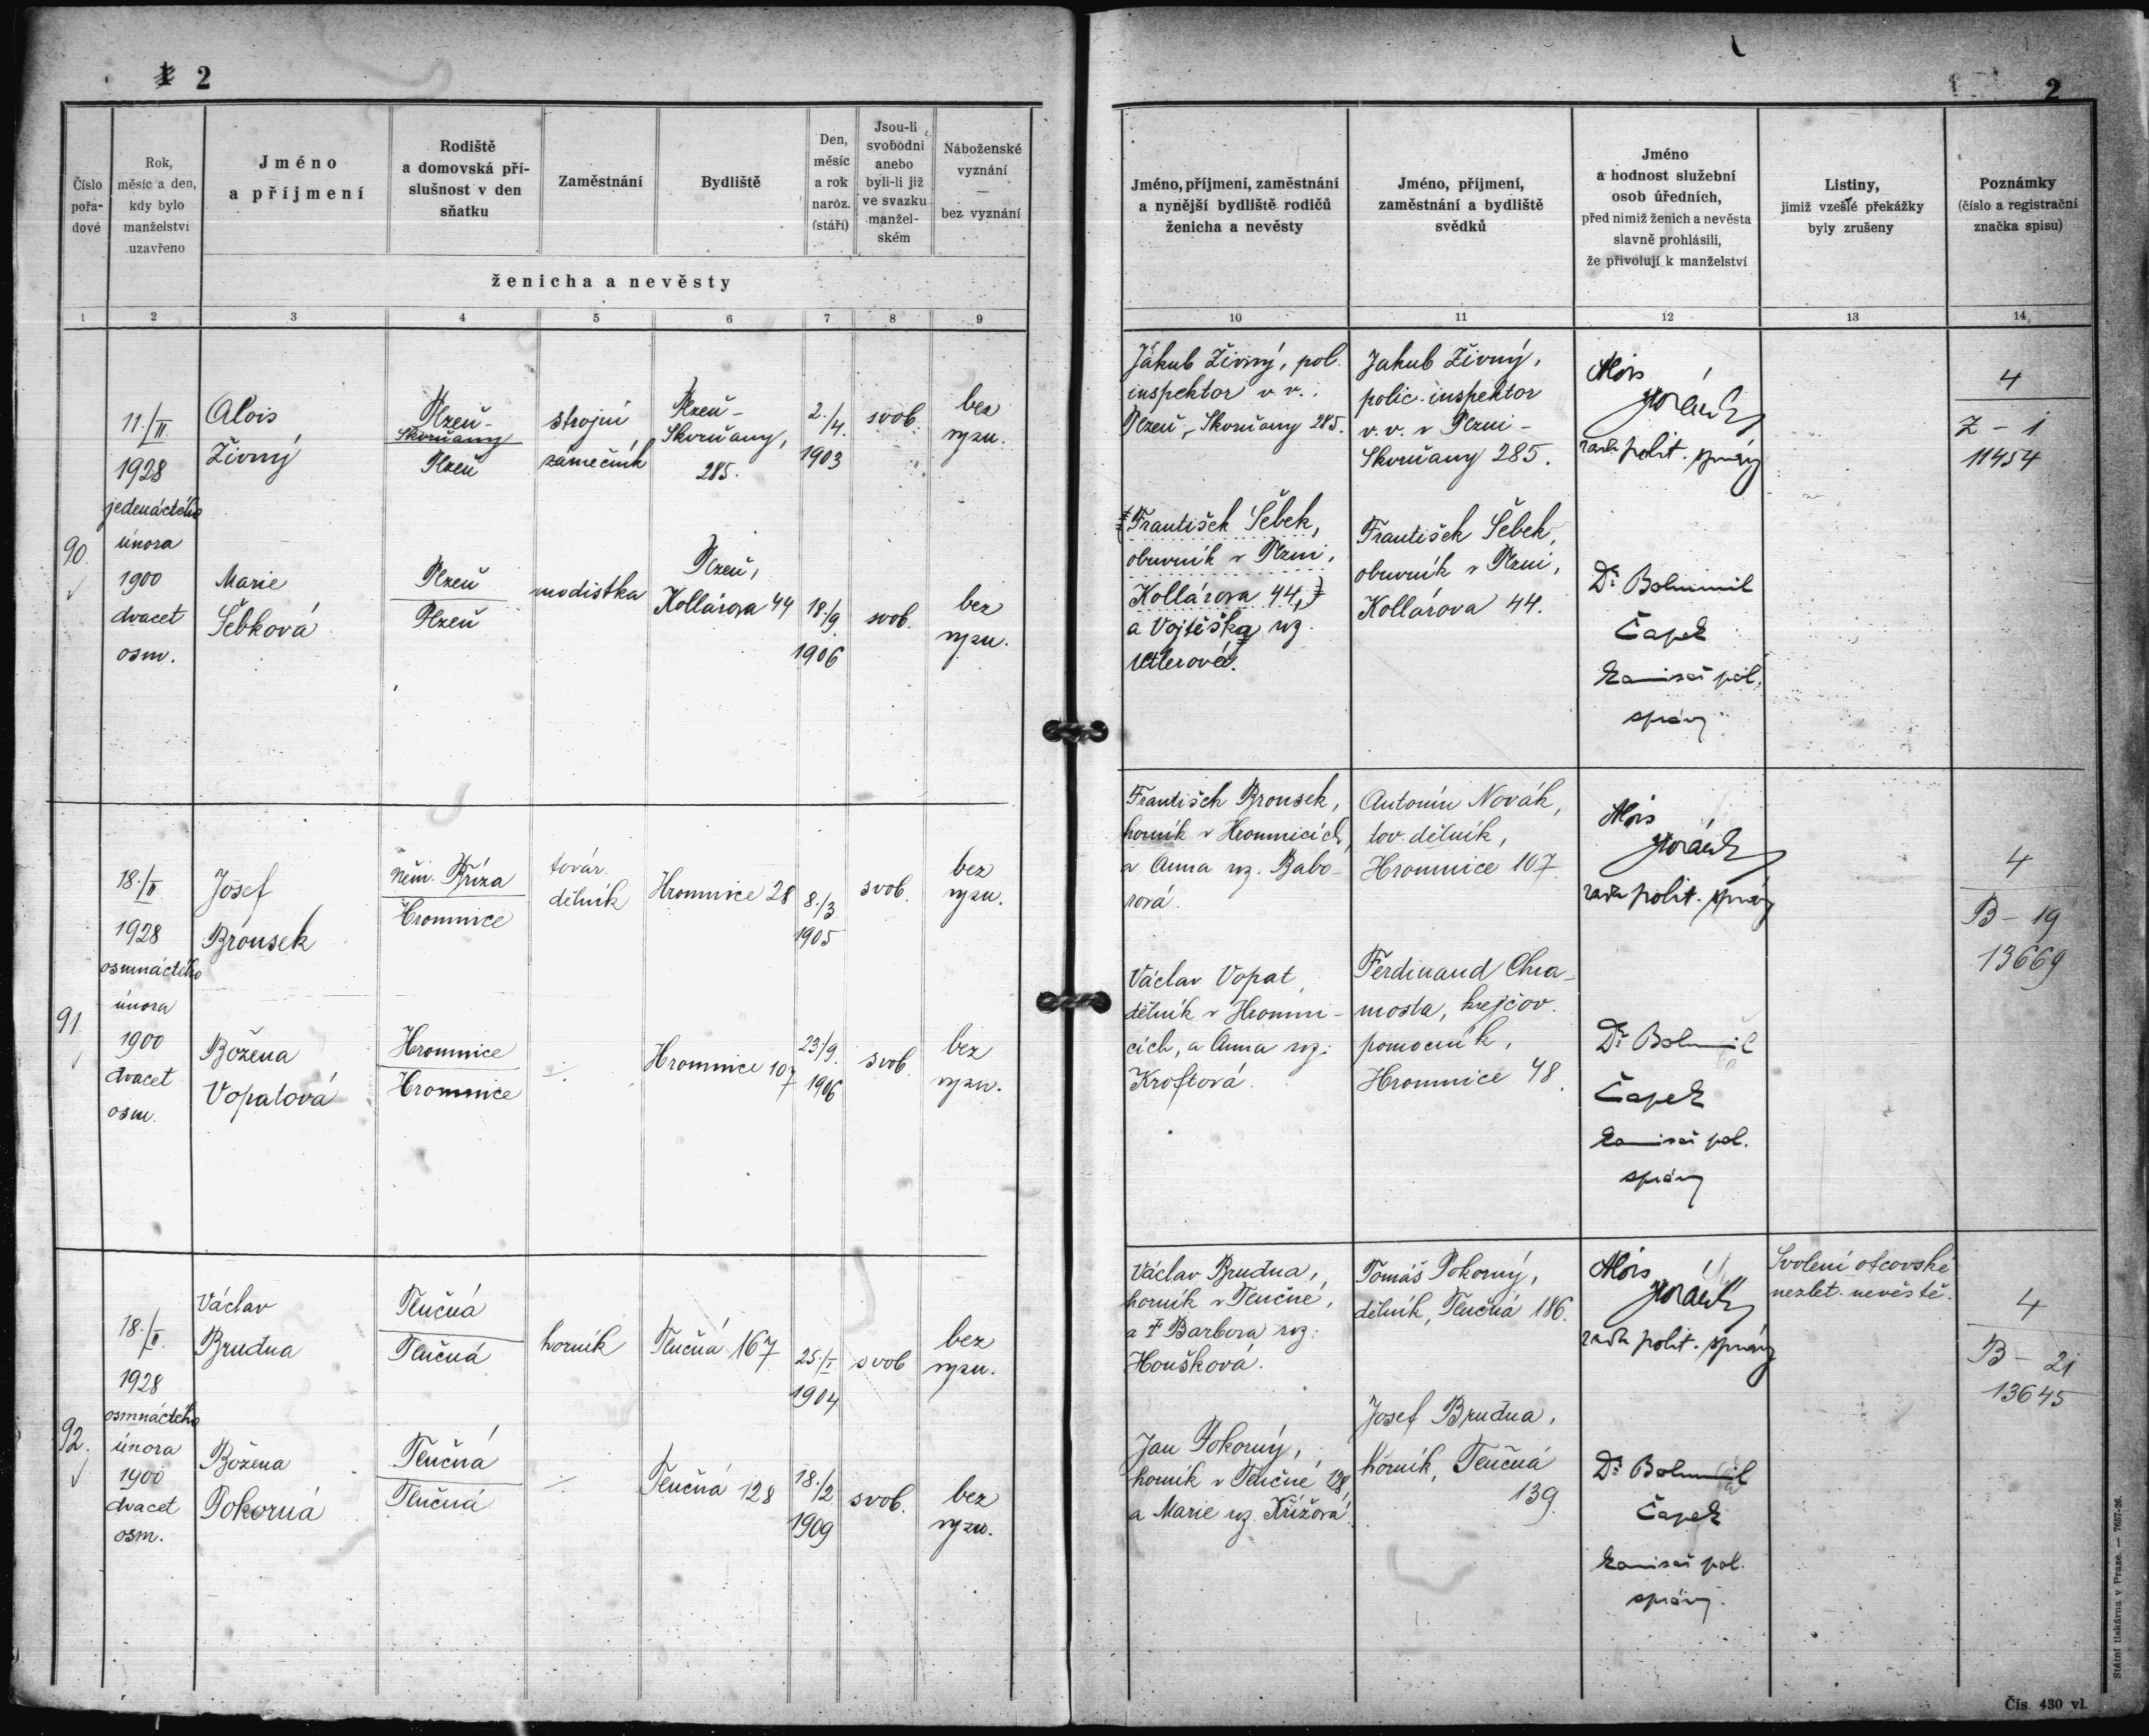 2
Číslo pořa-dové
Rok, měsíc a den, kdy bylo manželství uzavřeno
Jméno a příjmení
Rodiště a domovská pří-slušnost v den sňatku
Zaměstnání
Bydliště
Den, měsíc a rok naroz. (stáří)
Jsou-li svobodni anebo byli-li již ve svazku manžel-ském
Náboženské vyznání — bez vyznání
ženicha a nevěsty
1 2 3 4 5 6 7 8 9
90.
11./II.
1928
jedenáctého
února
1900
dvacet
osm.
Alois
Živný
Plzeň-
Skvrňany
Plzeň
strojní
zámečník
Plzeň-
Skvrňany,
285.
2./4.
1903
svob.
bez
vyzn.
Marie
Šebková
Plzeň
Plzeň
modistka
Plzeň,
Kollárova 44
18./9.
1906
svob.
bez
vyzn.
91
18./II.
1928
osmnáctého
února
1900
dvacet
osm.
Josef
Brousek
Něm. Bříza
Hromnice
továr.
dělník
Hromnice 28
8./3
1905
svob.
bez
vyzn.
Božena
Vopatová
Hromnice
Hromnice
Hromnice 107
23/9.
1906
svob.
bez
vyzn.
92.
18./II.
1928
osmnáctého
února
1900
dvacet
osm.
Václav
Brudna
Tlučná
Tlučná
horník
Tlučná 167
25./I
1904
svob
bez
vyzn.
Božena
Pokorná
Tlučná
Tlučná
Tlučná 128
18./2
1909
svob.
bez
vyzn.
2
Jméno, příjmení, zaměstnání
a nynější bydliště rodičů
ženicha a nevěsty
Jméno, příjmení,
zaměstnání a bydliště
svědků
Jméno
a hodnost služební
osob úředních,
před nimiž ženich a nevěsta
slavně prohlásili,
že přivolují k manželství
Listiny,
jimiž vzešlé překážky
byly zrušeny
Poznámky
(číslo a registrační
značka spisu)
10 11 12 13 14
Jakub Živný, pol.
inspektor v. v.
Plzeň, Skvrňany 285.
František Šebek,
obuvník v Plzni,
Kollárova 44,
a Vojtěška roz.
Jakub Živný,
polic. inspektor
v. v. v Plzni-
Skvrňany 285.
František Šebek,
obuvník v Plzni,
Kollárova 44.
Alois
Horáček
rada polit. správy
Dr Bohumil
Čapek
komisař pol.
správy
4
Z - 1
11454
František Brousek,
horník v Hromnicích,
a Anna roz. Babo-
rová.
Václav Vopat,
dělník v Hromni-
cích, a Anna roz.
Kroftová.
Antonín Novák,
tov. dělník,
Hromnice 107.
Ferdinand Chra-
mosta, krejčov.
pomocník,
Hromnice 48.
Alois
Horáček
rada polit. správy
Dr Bohumil
Čapek
komisař pol.
správy
4
B - 19
13669
Václav Brudna,
horník v Tlučné,
a † Barbora roz.
Houšková.
Jan Pokorný,
horník v Tlučné 128,
a Marie roz. Křížová
Tomáš Pokorný,
dělník, Tlučná 186.
Josef Brudna,
horník, Tlučná
139
Alois
Horáček
rada polit. správy
Dr Bohumil
Čapek
komisař pol.
správy.
Svolení otcovské
nezlet. nevěstě.
4
B - 21
13645
Státní tiskárna v Praze. — 7657-26.
Čís. 430 vl.